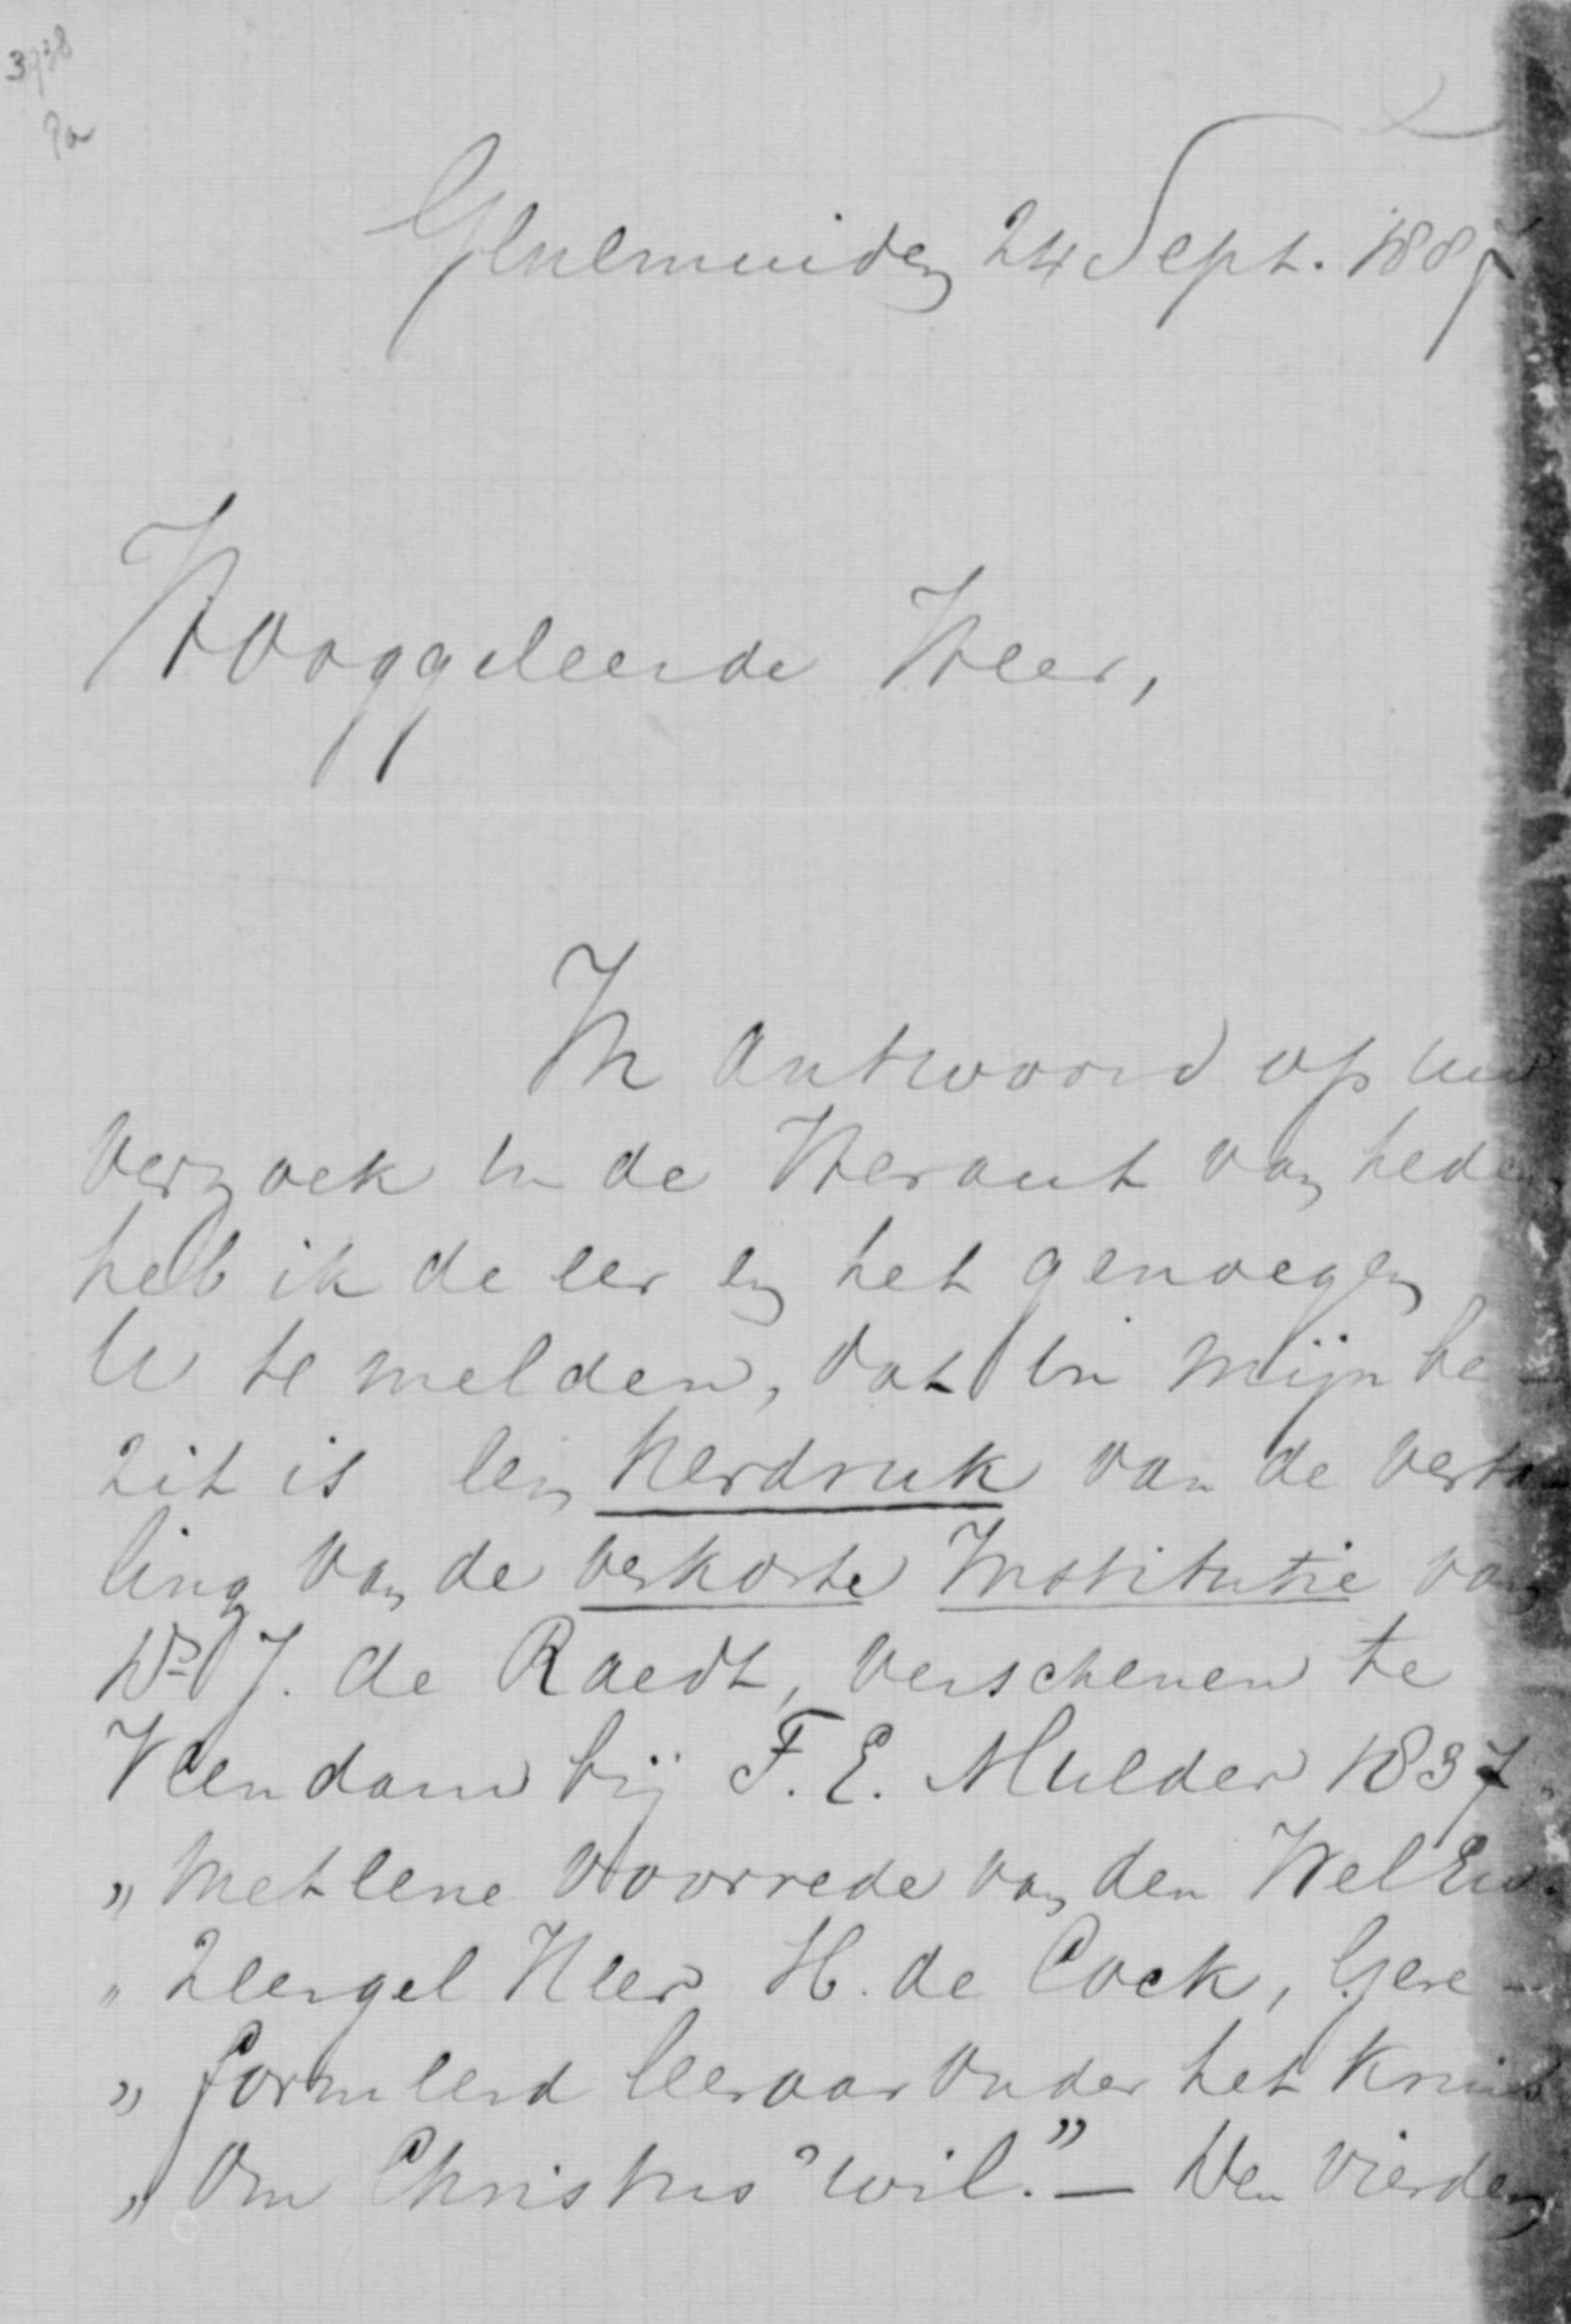 3938
Genemuiden 24 Sept. 1887
Hooggeleerde Heer,
In antwoord op uw
verzoek in de Heraut van heden
heb ik de eer en het genoegen
U te melden, dat in mijn be-
zit is een herdruk van de verta-
ling van de verkorte Institutie van
Ds J. de Raedt, verschenen te
Veendam bij F. E. Mulder 1837.
„ Met eene voorrede van den WelEw.
„ Zeergel Heer H. de Cock, Gere-
„ formeerd leeraar onder het kruis
„ om Christus' wil.” — Den vierden